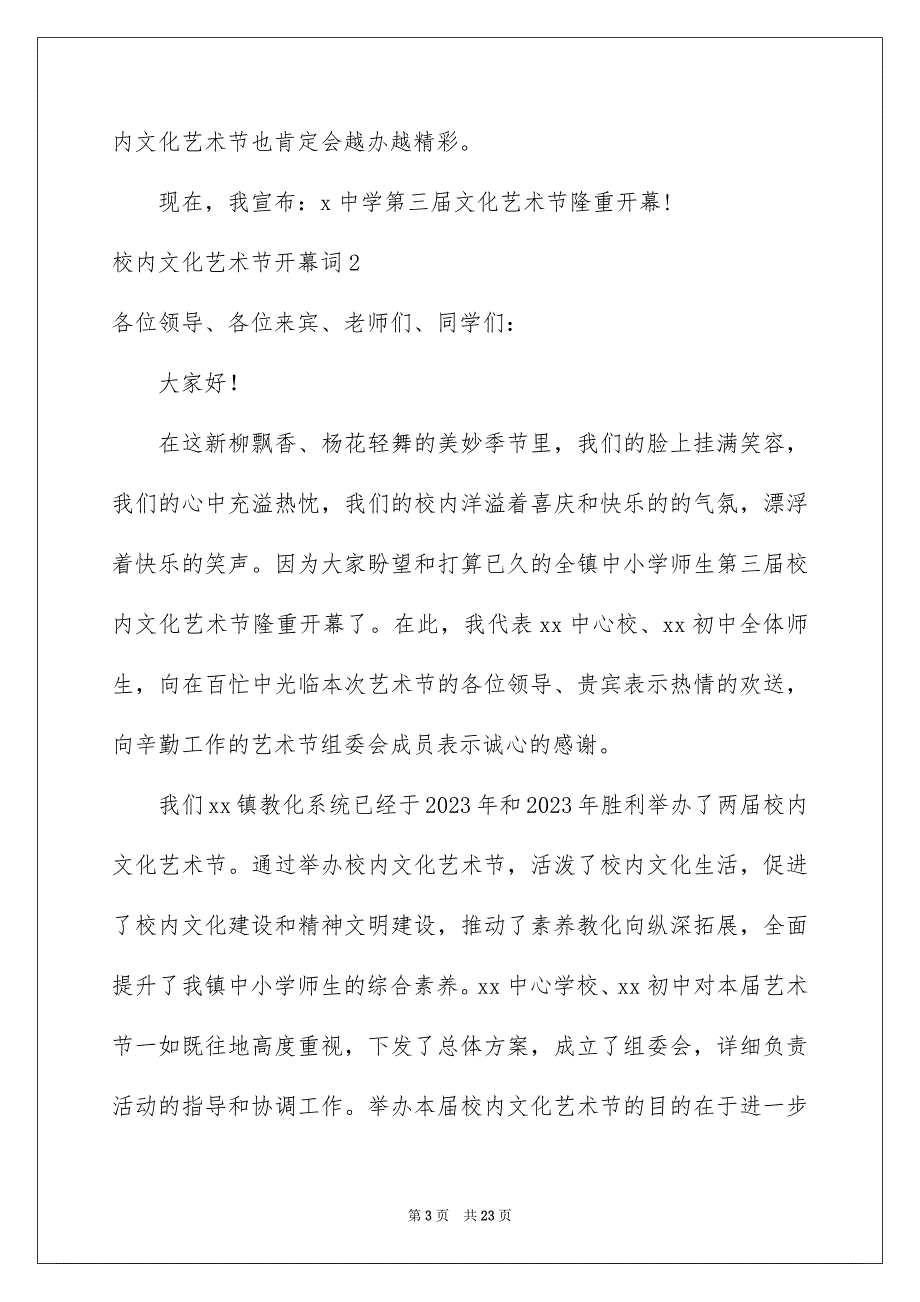 内文化艺术节也肯定会越办越精彩。
现在，我宣布：x 中学第三届文化艺术节隆重开幕!
校内文化艺术节开幕词 2
各位领导、各位来宾、老师们、同学们：
大家好！
在这新柳飘香、杨花轻舞的美妙季节里，我们的脸上挂满笑容，
我们的心中充溢热忱，我们的校内洋溢着喜庆和快乐的的气氛，漂浮
着快乐的笑声。因为大家盼望和打算已久的全镇中小学师生第三届校
内文化艺术节隆重开幕了。在此，我代表 xx 中心校、xx 初中全体师
生，向在百忙中光临本次艺术节的各位领导、贵宾表示热情的欢送，
向辛勤工作的艺术节组委会成员表示诚心的感谢。
我们 xx 镇教化系统已经于 2023 年和 2023 年胜利举办了两届校内
文化艺术节。通过举办校内文化艺术节，活泼了校内文化生活，促进
了校内文化建设和精神文明建设，推动了素养教化向纵深拓展，全面
提升了我镇中小学师生的综合素养。xx 中心学校、xx 初中对本届艺术
节一如既往地高度重视，下发了总体方案，成立了组委会，详细负责
活动的指导和协调工作。举办本届校内文化艺术节的目的在于进一步
第 3 页 共 23 页